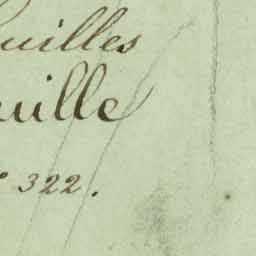 uilles
uille
° 322.